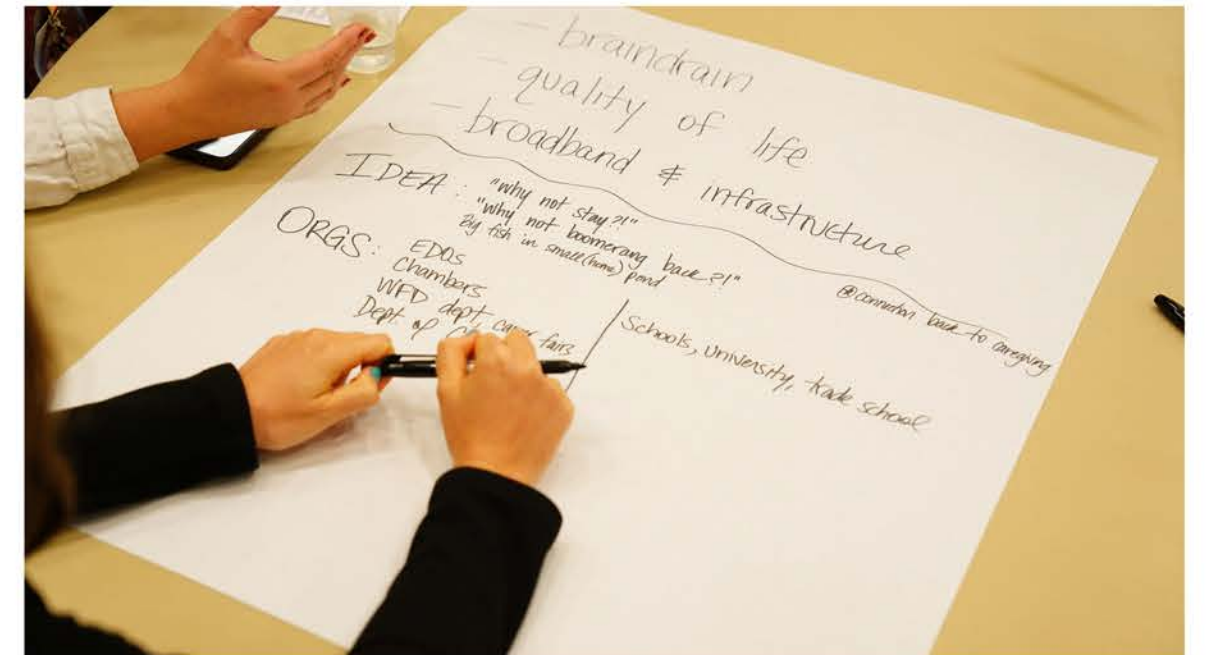 - braindrain
- quality of life
- broadband & infrastructure
IDEA: "why not stay?!"
"why not boomerang back?!"
Big fish in small (home) pond
⊛ connection back to caregiving
ORGS: EDOs
Chambers
WFD dept career fairs
Dept. of
Schools, university, trade school